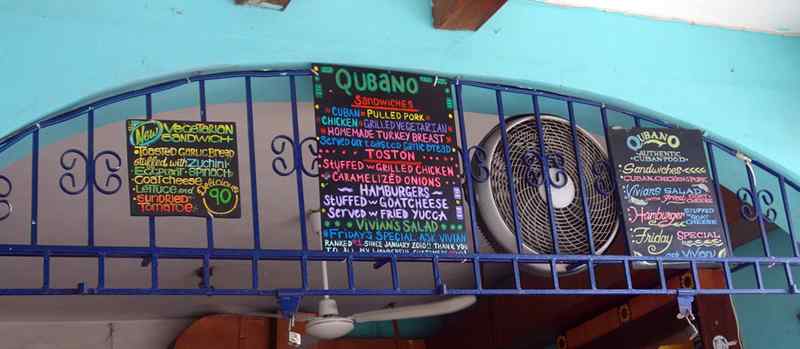 New Vegetarian
Sandwich
Toasted Garlic Bread
stuffed with Zuchini
Eggplant Spinach
Goat Cheese
Lettuce and
Sundried
Tomatoe
Delicious
90
QUBANO
Sandwiches
CUBAN PULLED PORK
CHICKEN GRILLED VEGETARIAN
HOMEMADE TURKEY BREAST
TOSTON
STUFFED w/ GRILLED CHICKEN
& CARAMELIZED ONIONS
HAMBURGERS
STUFFED w/ GOATCHEESE
SERVED w/ FRIED YUCCA
VIVIAN'S SALAD
FRIDAY'S SPECIAL ASK VIVIAN
RANKED #1 SINCE JANUARY 2010!! THANK YOU
TO ALL
QUBANO
AUTHENTIC
CUBAN FOOD
Sandwiches
CUBAN, CHICKEN, PORK
Vivian's SALAD
Hamburger STUFFED
w/ GOAT
CHEESE
Friday SPECIAL